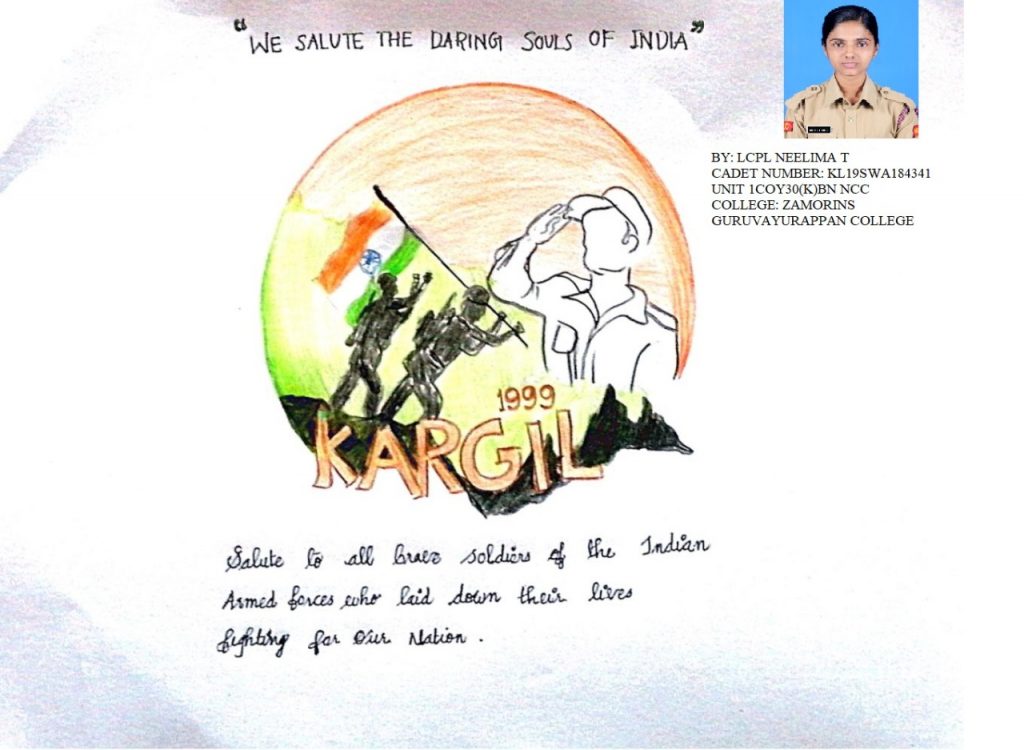 "WE SALUTE THE DARING SOULS OF INDIA"
BY: LCPL NEELIMA T
CADET NUMBER: KL19SWA184341
UNIT 1COY30(K)BN NCC
COLLEGE: ZAMORINS
GURUVAYURAPPAN COLLEGE
1999
KARGIL
Salute to all brave soldiers of the Indian
Armed forces who laid down their lives
fighting for Our Nation.